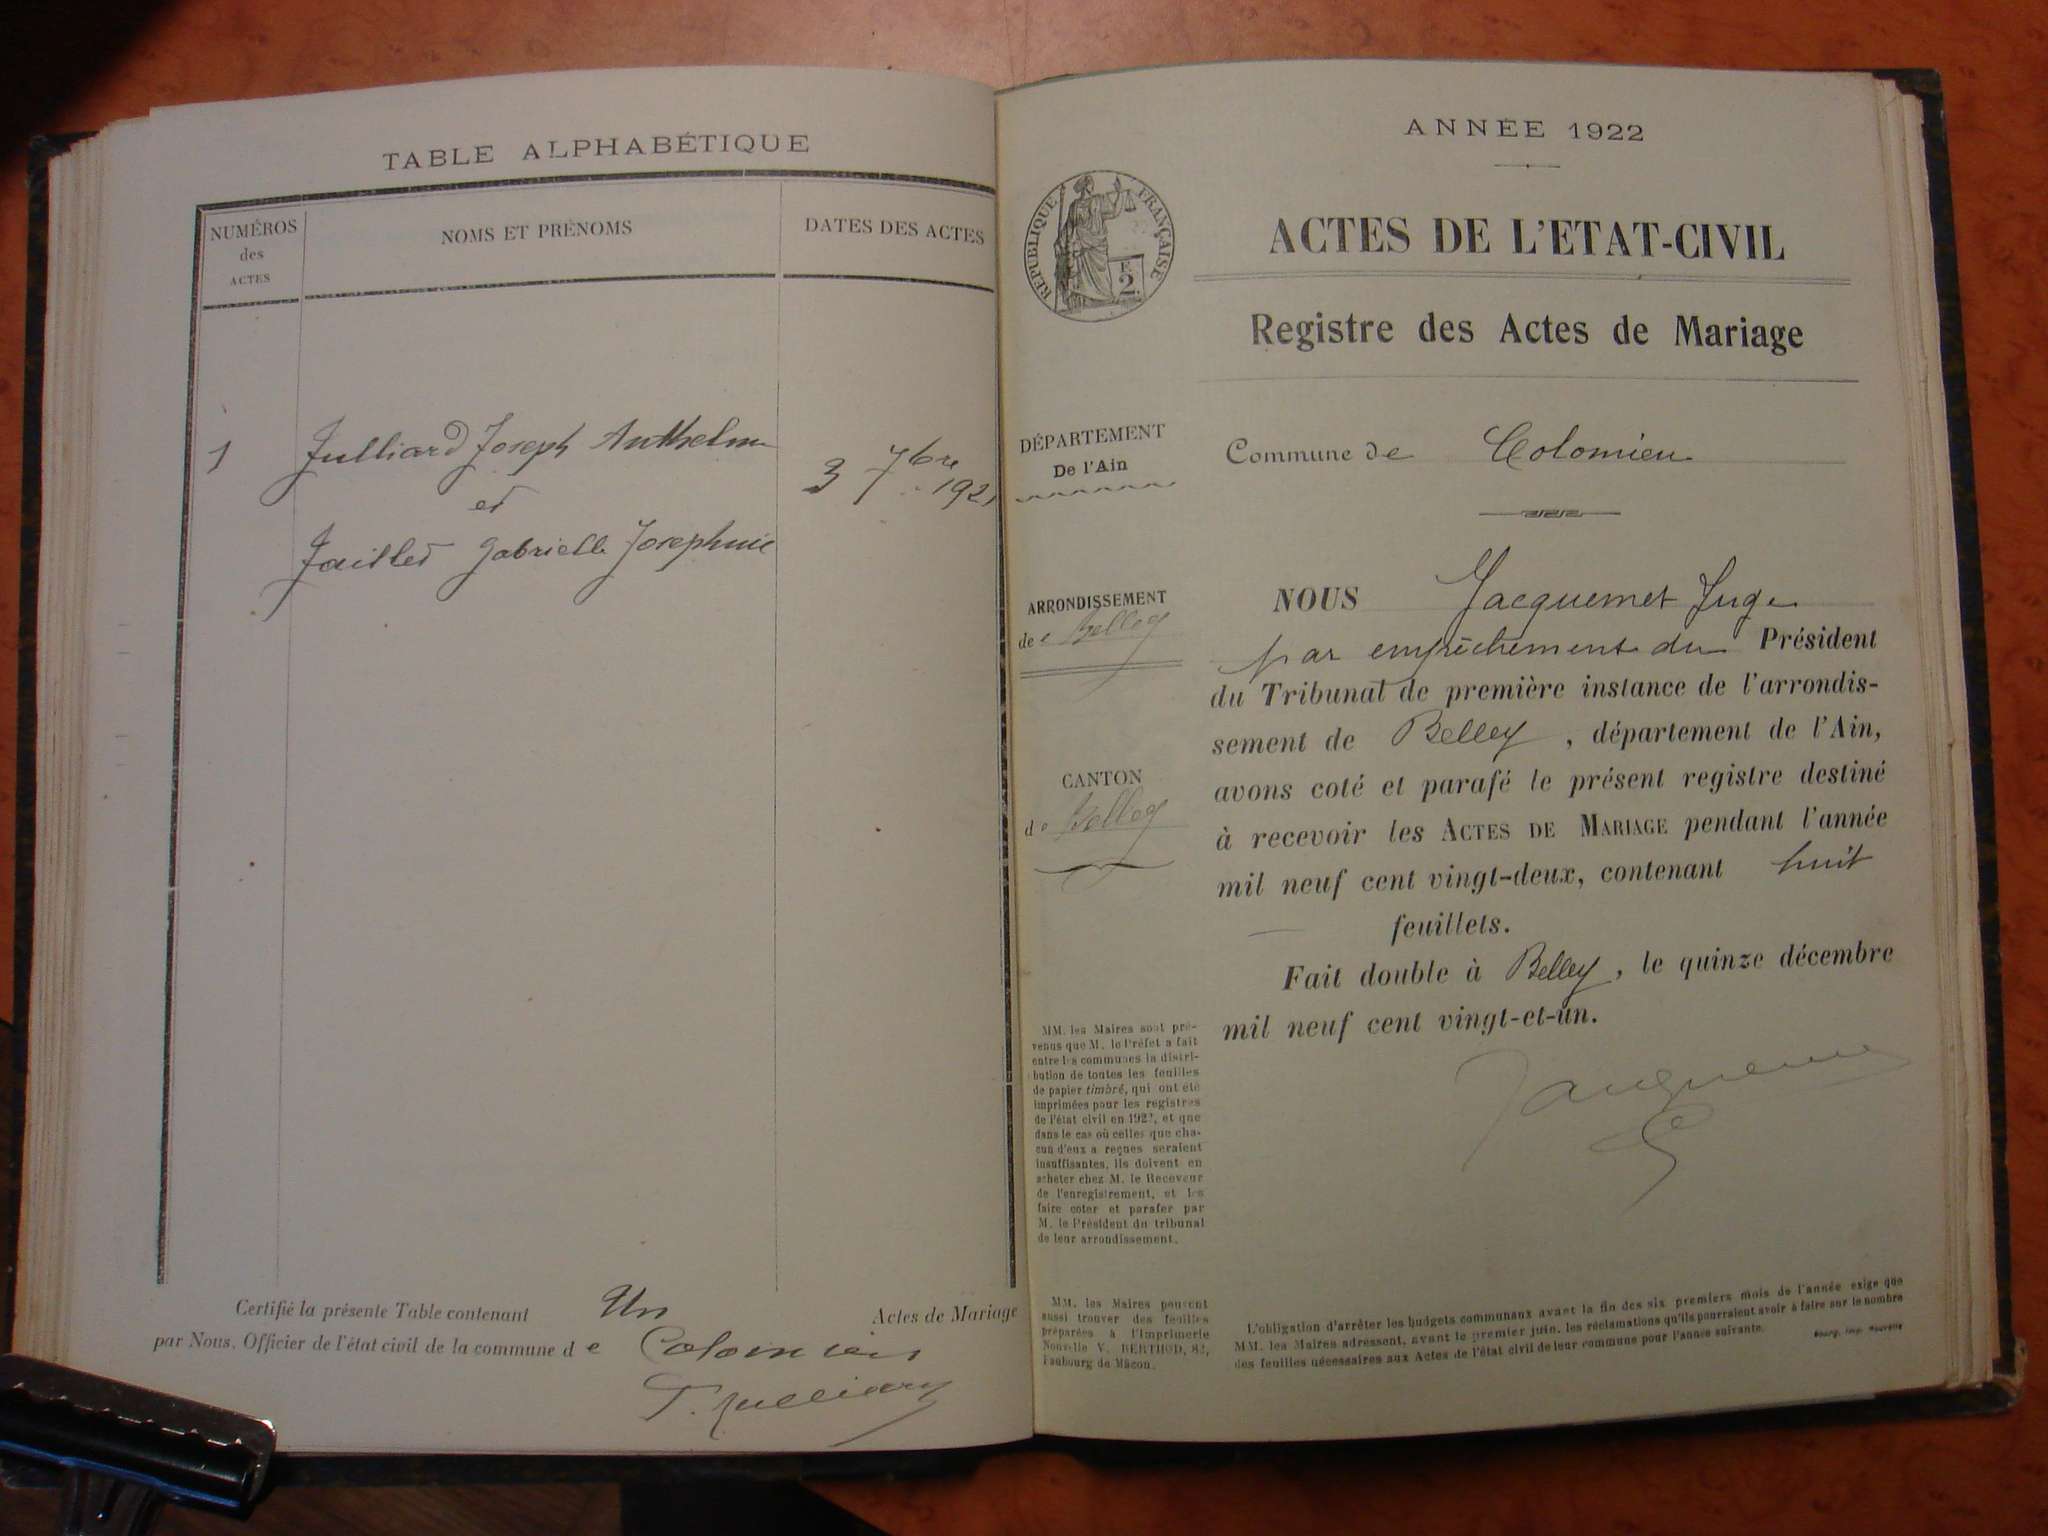 TABLE ALPHABÉTIQUE
NUMÉROS
des
ACTES
NOMS ET PRÉNOMS
DATES DES ACTES
1
Julliard Joseph Anthelme
3 7bre 1921
et
Jaillet Gabrielle Josephine
Certifié la présente Table contenant Un Actes de Mariage
par Nous, Officier de l'état civil de la commune de Colomieu
J. Julliard
ANNÉE 1922
RÉPUBLIQUE FRANÇAISE
F.
2
ACTES DE L'ETAT-CIVIL
Registre des Actes de Mariage
DÉPARTEMENT
De l'Ain
Commune de Colomieu
ARRONDISSEMENT
de Belley
CANTON
de Belley
NOUS Jacquemet Juge
par empêchement du Président
du Tribunal de première instance de l'arrondis-
sement de Belley, département de l'Ain,
avons coté et parafé le présent registre destiné
à recevoir les ACTES DE MARIAGE pendant l'année
mil neuf cent vingt-deux, contenant huit
feuillets.
Fait double à Belley, le quinze décembre
mil neuf cent vingt-et-un.
MM. les Maires sont pré-
venus que M. le Préfet a fait
entre les communes la distri-
bution de toutes les feuilles
de papier timbré, qui ont été
imprimées pour les registres
de l'état civil en 1922, et que
dans le cas où celles que cha-
cun d'eux a reçues seraient
insuffisantes, ils doivent en
acheter chez M. le Receveur
de l'enregistrement, et les
faire coter et parafer par
M. le Président du tribunal
de leur arrondissement.
MM. les Maires peuvent
aussi trouver des feuilles
préparées à l'Imprimerie
Nouvelle V. BERTHOD, 82,
Faubourg de Mâcon.
L'obligation d'arrêter les budgets communaux avant la fin des six premiers mois de l'année exige que
MM. les Maires adressent, avant le premier juin, les réclamations qu'ils pourraient avoir à faire sur le nombre
des feuilles nécessaires aux Actes de l'état civil de leur commune pour l'année suivante.
Bourg, Imp. Nouvelle